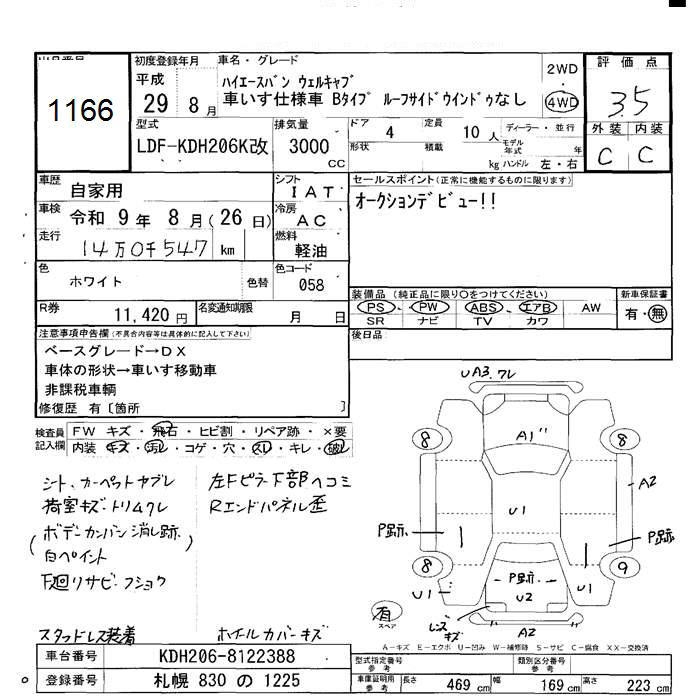 初度登録年月 車名・グレード
平成 29年 8月
ハイエースバン ウェルキャブ
車いす仕様車 Bタイプ ルーフサイドウインドゥなし
2WD
4WD
評価点
3.5
外装 内装
C C
1166
型式 排気量
LDF-KDH206K改 3000 CC
ドア 4 定員 10人
形状 積載 kg
ディーラー・並行
モデル年式 年
ハンドル 左・右
車歴 自家用
シフト IAT
車検 令和 9年 8月(26日)
冷房 AC
走行 14万0千547 km
燃料 軽油
色 ホワイト 色替
色コード 058
R券 11,420円
名変通知期限 月 日
セールスポイント(正常に機能するものに限ります)
オークションデビュー!!
装備品(純正品に限り○をつけてください)
PS・PW ABS・エアB AW
SR ナビ TV カワ
新車保証書
有・無
後日品
注意事項申告欄(不具合内容等は具体的に記入して下さい)
ベースグレード→DX
車体の形状→車いす移動車
非課税車輌
修復歴 有〔箇所 〕
検査員記入欄
FW キズ・飛石・ヒビ割・リペア跡・×要
内装 キズ・汚レ・コゲ・穴・スレ・キレ・破レ
シート、カーペットヤブレ
荷室キズ・トリムワレ
(ボデーカンバン消し跡)
白ペイント
下廻リサビ・フショク
左Fピラー下部ヘコミ
Rエンドパネル歪
スタッドレス装着
ホイルカバーキズ
UA3.ワレ
A1"
8 8
A2
U1
P跡. P跡
8 9
U1 P跡. U1
U2
レンズキズ
"A2"
有
スペア
A-キズ E-エクボ U-凹み W-補修跡 S-サビ C-腐食 XX-交換済
車台番号 KDH206-8122388
登録番号 札幌 830 の 1225
型式指定番号 参考 類別区分番号 参考
車庫証明用 参考 長さ 469 cm 幅 169 cm 高さ 223 cm